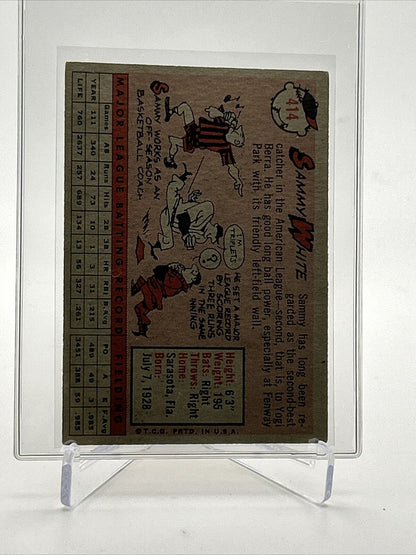 414
SAMMY WHITE
Sammy has long been re-
garded as the second-best
catcher in the American League—second, that is, to Yogi
Berra. He has good long ball power, especially at Fenway
Park with its friendly left-field wall.
SAMMY WORKS AS AN
OFF-SEASON
BASKETBALL COACH
I'M
TRIPLETS
?
HE SET A MAJOR
LEAGUE RECORD
BY SCORING
THREE RUNS
IN THE SAME
INNING
Height: 6'3"
Weight: 195
Bats: Right
Throws: Right
Home:
Sarasota, Fla.
Born:
July 7, 1928
MAJOR LEAGUE BATTING RECORD FIELDING
Games AB Runs Hits 2B 3B HR RBI B.Avg PO A E F.Avg
YEAR 111 340 24 73 10 1 3 31 .215 489 49 8 .985
LIFE 760 2637 257 689 134 13 56 327 .261 3451 388 59 .985
© T.C.G. PRTD. IN U.S.A.